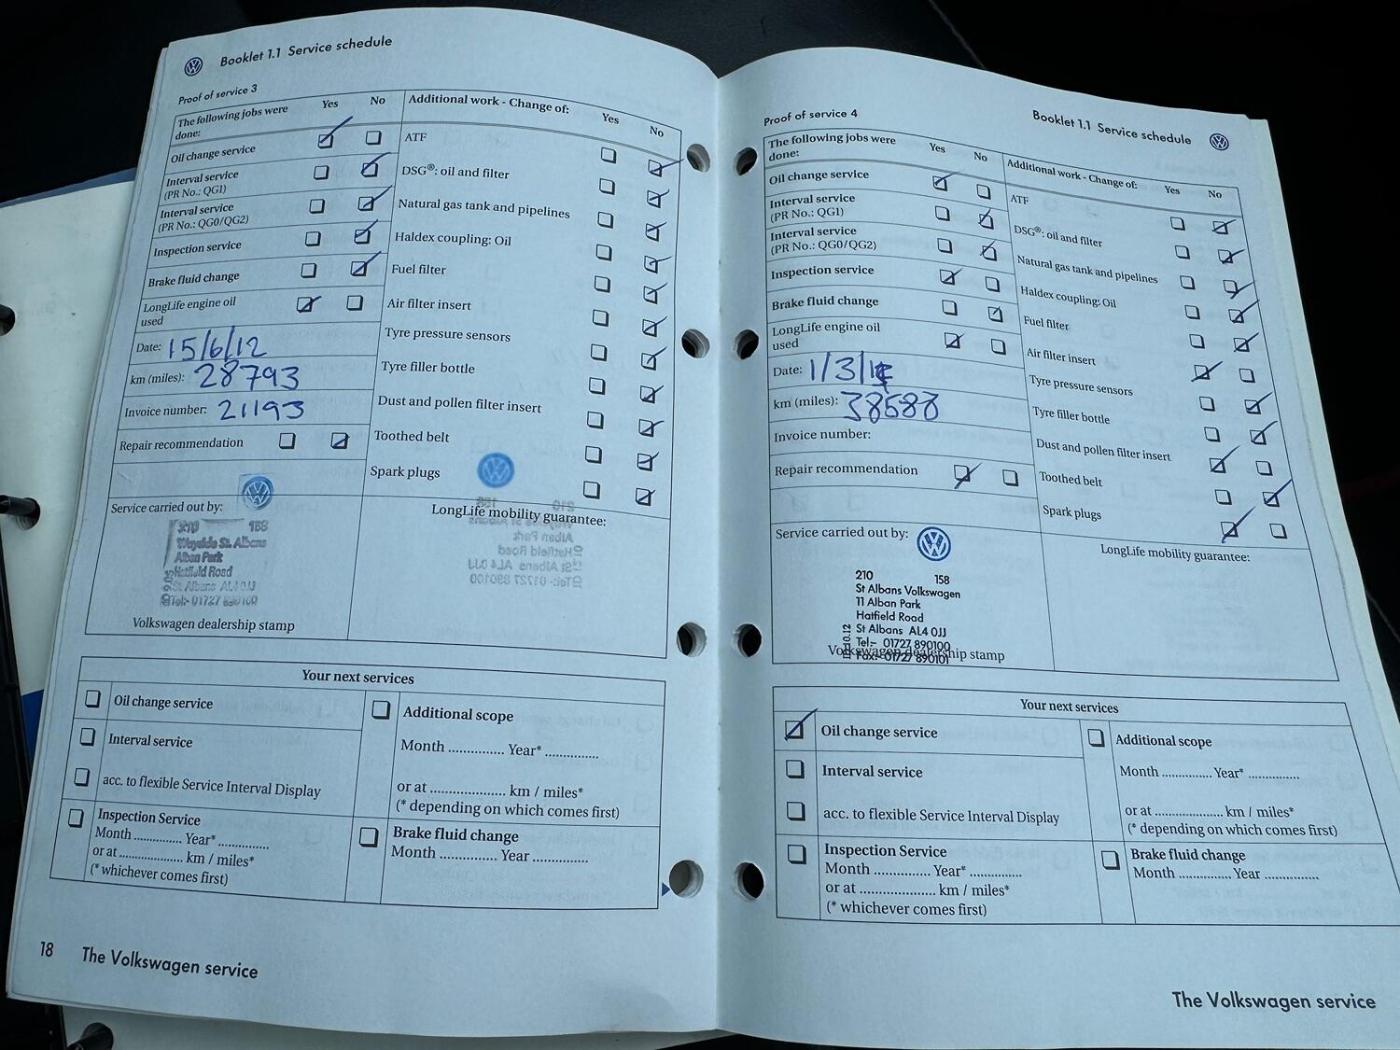 Booklet 1.1 Service schedule
Proof of service 3
The following jobs were done:
Yes No
Oil change service
Interval service
(PR No.: QG1)
Interval service
(PR No.: QG0/QG2)
Inspection service
Brake fluid change
LongLife engine oil
used
Date: 15/6/12
km (miles): 28793
Invoice number: 21193
Repair recommendation
Additional work - Change of:
Yes No
ATF
DSG®: oil and filter
Natural gas tank and pipelines
Haldex coupling: Oil
Fuel filter
Air filter insert
Tyre pressure sensors
Tyre filler bottle
Dust and pollen filter insert
Toothed belt
Spark plugs
Service carried out by:
158
Wayside St. Albans
Alban Park
Hatfield Road
St Albans AL4 0JJ
Tel:- 01727 890100
Volkswagen dealership stamp
LongLife mobility guarantee:
Your next services
Oil change service
Interval service
acc. to flexible Service Interval Display
Inspection Service
Month .............. Year* ..............
or at .................. km / miles*
(* whichever comes first)
Additional scope
Month .............. Year* ..............
or at .................... km / miles*
(* depending on which comes first)
Brake fluid change
Month .............. Year ..............
18 The Volkswagen service
Booklet 1.1 Service schedule
Proof of service 4
The following jobs were
done:
Yes No
Oil change service
Interval service
(PR No.: QG1)
Interval service
(PR No.: QG0/QG2)
Inspection service
Brake fluid change
LongLife engine oil
used
Date: 1/3/
km (miles): 38588
Invoice number:
Repair recommendation
Additional work - Change of:
Yes No
ATF
DSG®: oil and filter
Natural gas tank and pipelines
Haldex coupling: Oil
Fuel filter
Air filter insert
Tyre pressure sensors
Tyre filler bottle
Dust and pollen filter insert
Toothed belt
Spark plugs
Service carried out by:
210 158
St Albans Volkswagen
11 Alban Park
Hatfield Road
St Albans AL4 0JJ
Tel:- 01727 890100
Fax:- 01727 890101
Volkswagen dealership stamp
LongLife mobility guarantee:
Your next services
Oil change service
Interval service
acc. to flexible Service Interval Display
Inspection Service
Month .............. Year* ..............
or at .................... km / miles*
(* whichever comes first)
Additional scope
Month .............. Year* ..............
or at .................... km / miles*
(* depending on which comes first)
Brake fluid change
Month .............. Year ..............
The Volkswagen service